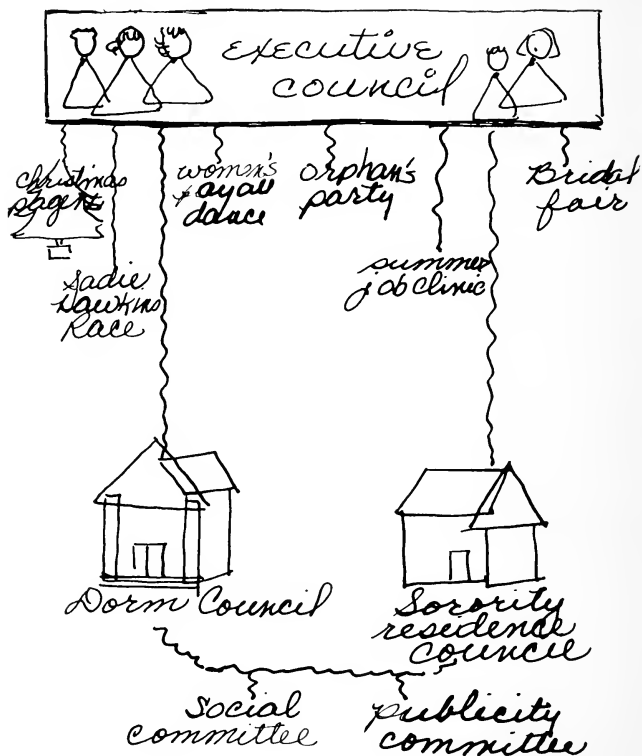 executive
council
christmas
pagent
women's
dance
orphan's
party
Bridal
fair
Sadie
Hawkins
Race
summer
job clinic
Dorm Council
Sorority
residence
council
Social
committee
publicity
committee